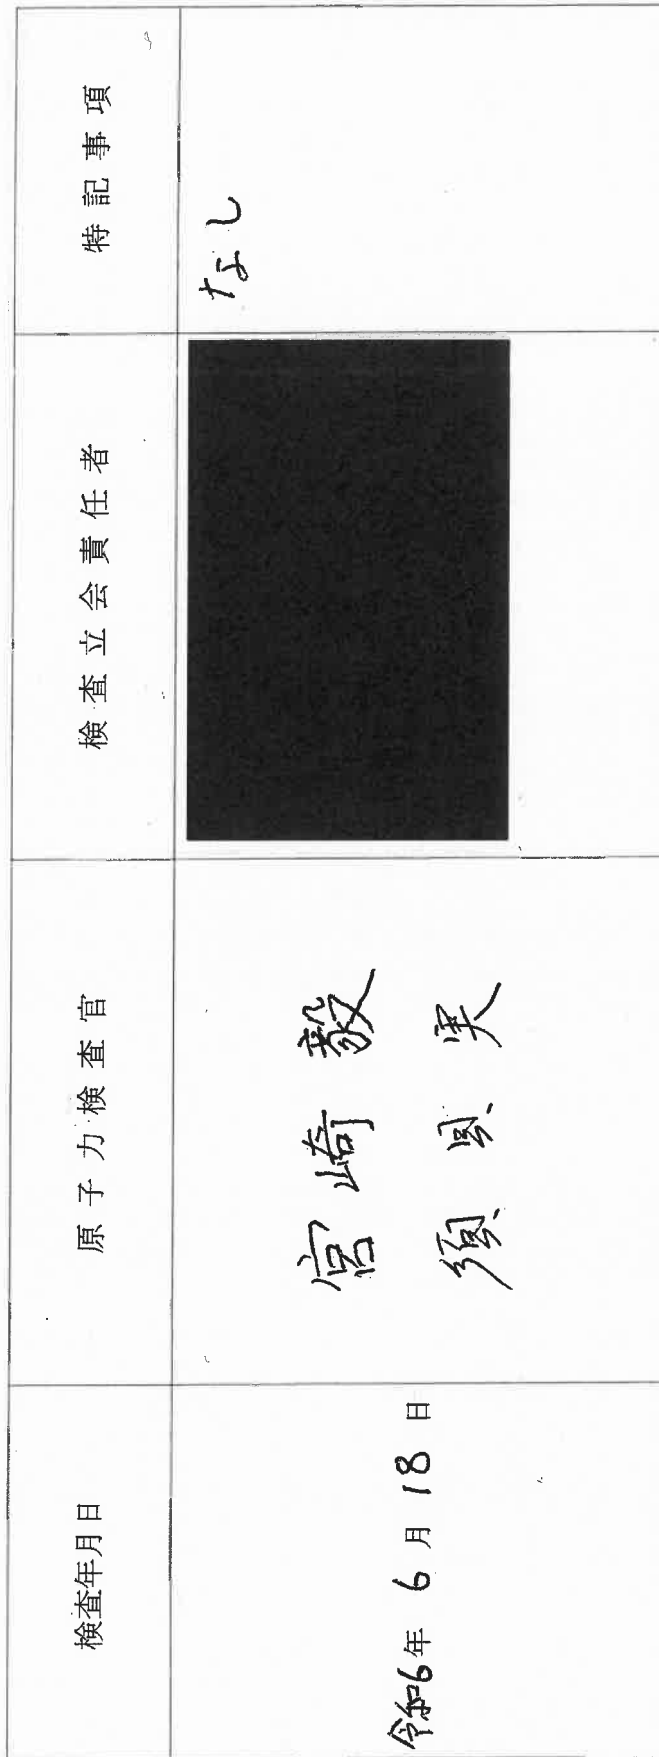 検査年月日
原子力検査官
検査立会責任者
特記事項
令和6年 6月 18日
宮崎 毅
須貝 実
なし